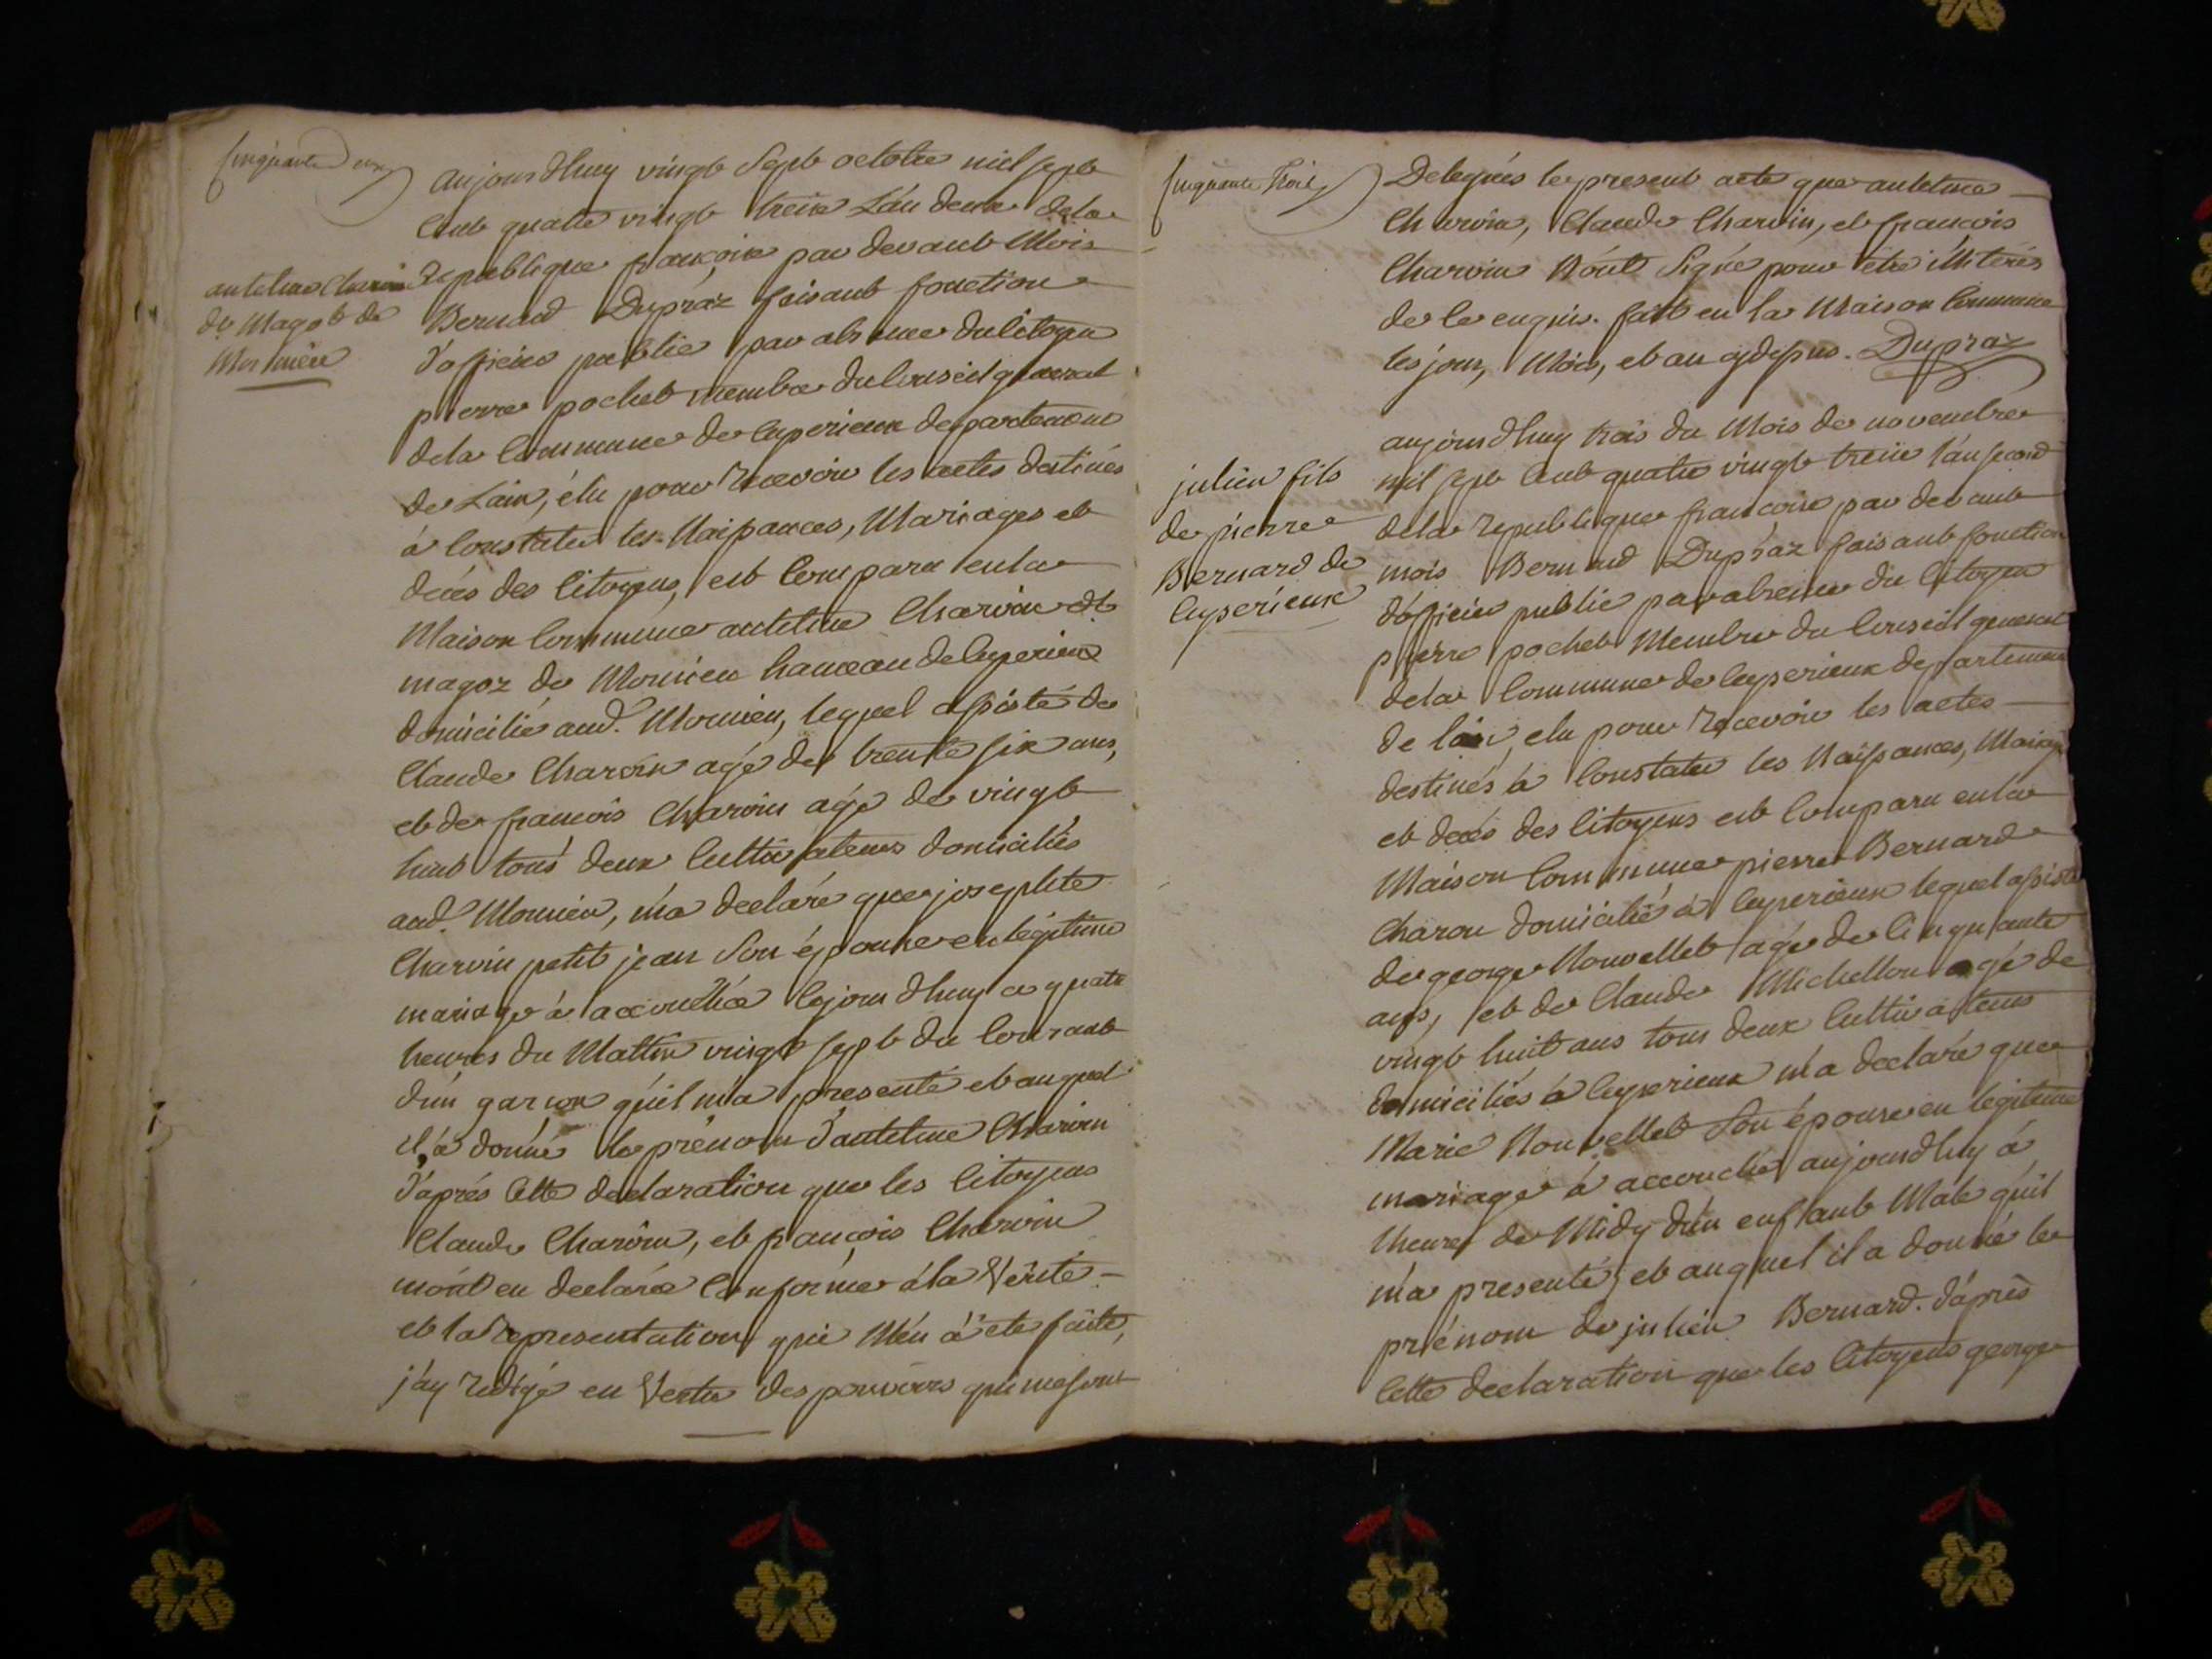 Cinquante deux
anthelme Charvin
dt. Magot de
Mornieu
aujourdhuy vingt Sept octobre mil sept
Cent quatre vingt treize L'an deux dela
Republique françoise par devant Mois
Bernard Dupraz faisant fonction
d'officier public par absence du Citoyen
pierre pochet membre du Conseil general
dela Commune de Ceyzerieux departement
de Lain, élu pour Recevoir les actes destinés
à Constater les Naissances, Mariages et
decés des Citoyens, est Comparu en la
Maison Commune antelme Charvin dt.
magoz de Mornieu hameau de Ceyzerieux
domicilié aud. Mornieu, lequel assisté de
Claude Charvin agé de trente six ans,
et de francois Charvin agé de vingt
huit tous deux Cultivateurs domiciliés
aud. Mornieu, m'a declaré que josephte
Charvin petit jean Son épouse en légitime
mariage à accouchée lejourdhuy a quatre
heures du Mattin vingt sept du Courant
d'un garcon qu'il m'a presenté et auquel
il à donné le prénom d'antelme Charvin
d'aprés Cette declaration que les Citoyens
Claude Charvin, et françois Charvin
m'ont en declarée Conforme à la Vérité
et la representation qui M'en à été faite,
j'ay redigé en Vertu des pouvoirs qui me sont
Cinquante Trois
Delegués le present acte que antelme
Charvin, Claude Charvin, et francois
Charvin N'ont Signé pour être illiterés
de ce enquis. fait en la Maison Commune
les jour, Mois, et an cydessus. Dupraz
julien fils
de pierre
Bernard de
Ceyserieux
aujourdhuy trois du Mois de novembre
mil sept Cent quatre vingt treize l'an second
dela republique francoise par devant
mois Bernard Dupraz faisant fonction
d'officier public par absence du Citoyen
pierre pochet Membre du Conseil general
dela Commune de Ceyzerieux departement
de lain, elu pour Recevoir les actes
destinés à Constater les Naissances, Mariages
et decés des Citoyens est Comparu en la
Maison Commune pierre Bernard
Charon domicilié à Ceyzerieux lequel assisté
de george Nouvellet agé de Cinquante
ans, et de Claude Michellon agé de
vingt huit ans tous deux Cultivateurs
domiciliés à Ceyzerieux m'a declaré que
Marie Nouvellet Son épouse en legitime
mariage à accouché aujourdhuy à
lheure de Midy d'un enfant Mâle qu'il
m'a presenté, et auquel il a donné le
prénom de julien Bernard. d'aprés
Cette declaration que les Citoyens george